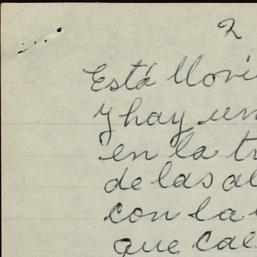 2
Está llovi
y hay un
en la t
de las al
con la
que cae